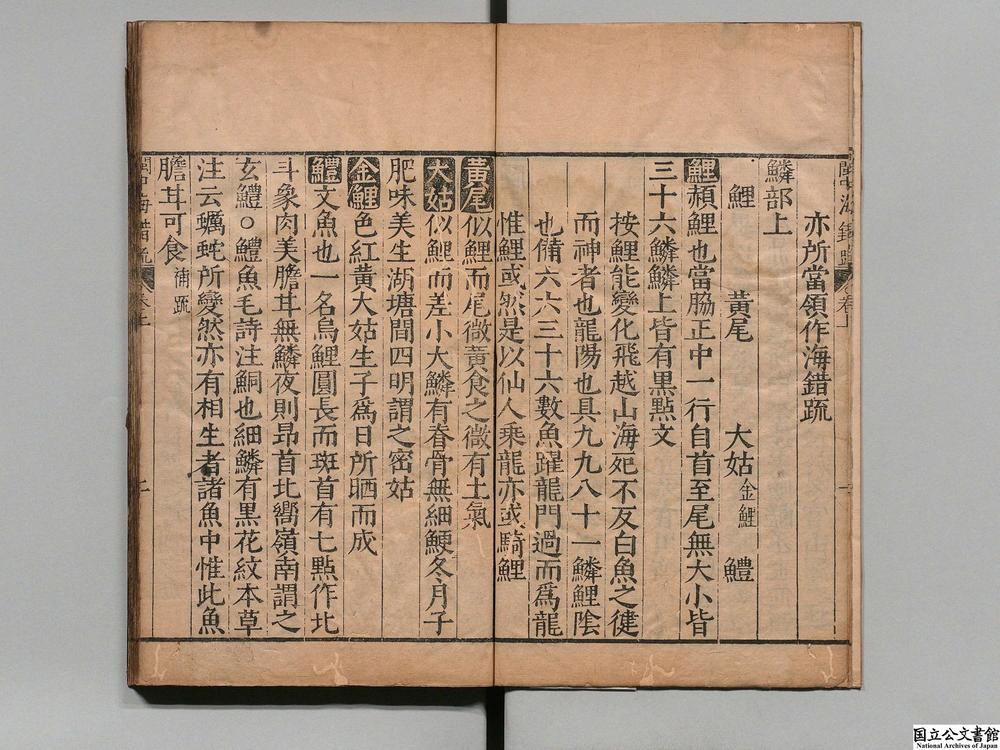 亦所當領作海錯疏
鱗部上
鯉 黃尾 大姑金鯉 鱧
鯉赬鯉也當脇正中一行自首至尾無大小皆
三十六鱗鱗上皆有黑點文
按鯉能變化飛越山海死不反白魚之健
而神者也龍陽也具九九八十一鱗鯉陰
也俻六六三十六數魚躍龍門過而爲龍
惟鯉或然是以仙人乘龍亦或騎鯉
黃尾似鯉而尾微黃食之微有土氣
大姑似鯉而差小大鱗有脊骨無細鯁冬月子
肥味美生湖塘間四明謂之密姑
金鯉色紅黃大姑生子爲日所晒而成
鱧文魚也一名烏鯉圓長而斑首有七點作北
斗象肉美膽耳無鱗夜則昂首北嚮嶺南謂之
玄鱧○鱧魚毛詩注鮦也細鱗有黑花紋本草
注云蠣蛇所變然亦有相生者諸魚中惟此魚
膽耳可食補疏
閩中海錯疏 卷上
国立公文書館
National Archives of Japan